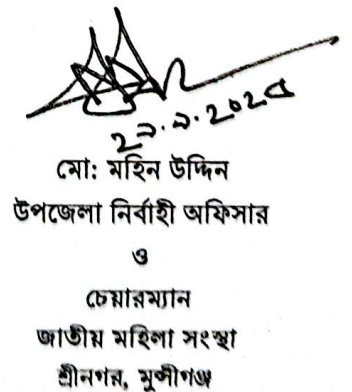 ২৯.৯.২০২৫
মো: মহিন উদ্দিন
উপজেলা নির্বাহী অফিসার
ও
চেয়ারম্যান
জাতীয় মহিলা সংস্থা
শ্রীনগর, মুন্সীগঞ্জ